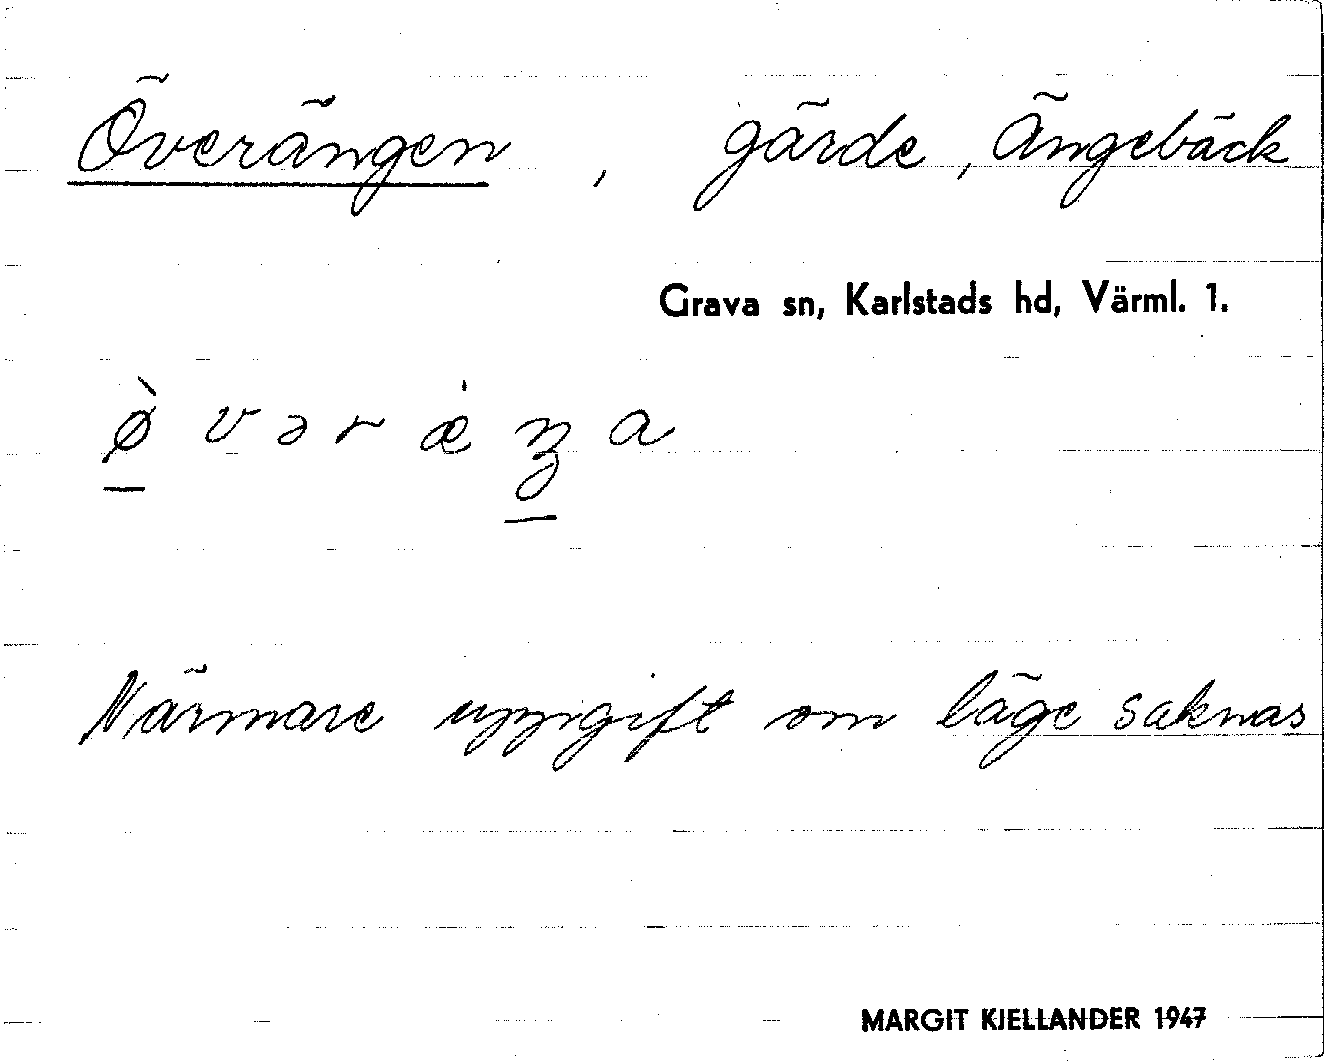 Överängen, gärde, Ängebäck
Grava sn, Karlstads hd, Värml. 1.
ø̀vəræ̍ŋa
Närmare uppgift om läge saknas
MARGIT KJELLANDER 1947